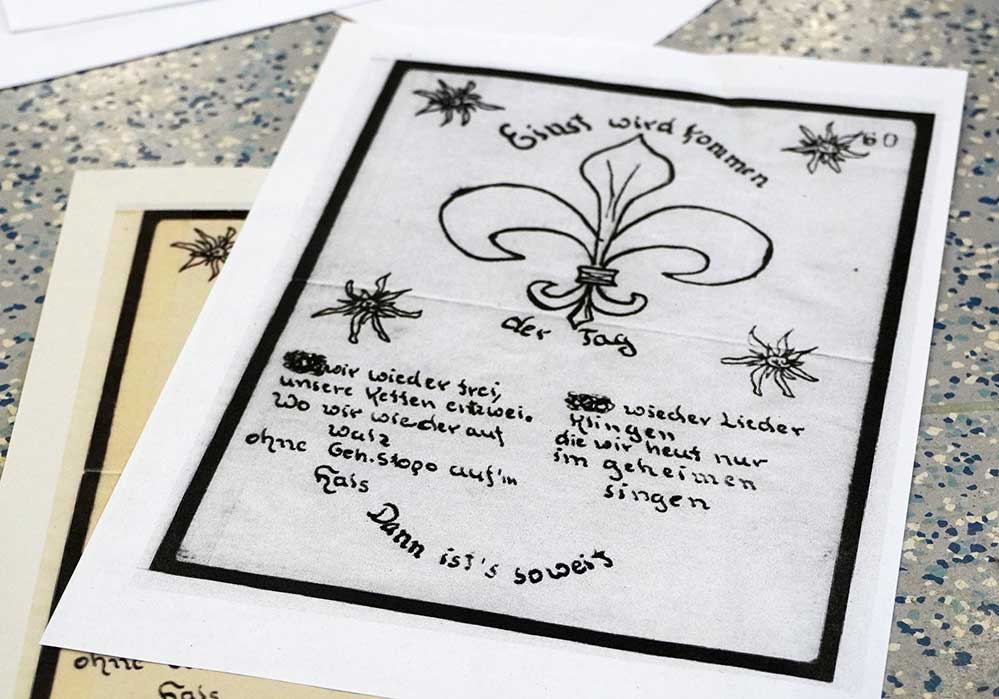 Einst wird kommen
60
der Tag
wir wieder frei,
unsere Ketten entzwei.
Wo wir wieder auf
Walz
ohne Geh.Stapo auf'm
Hals
wieder Lieder
klingen
die wir heut nur
im geheimen
singen
Dann ist's soweit
ohne
Hals